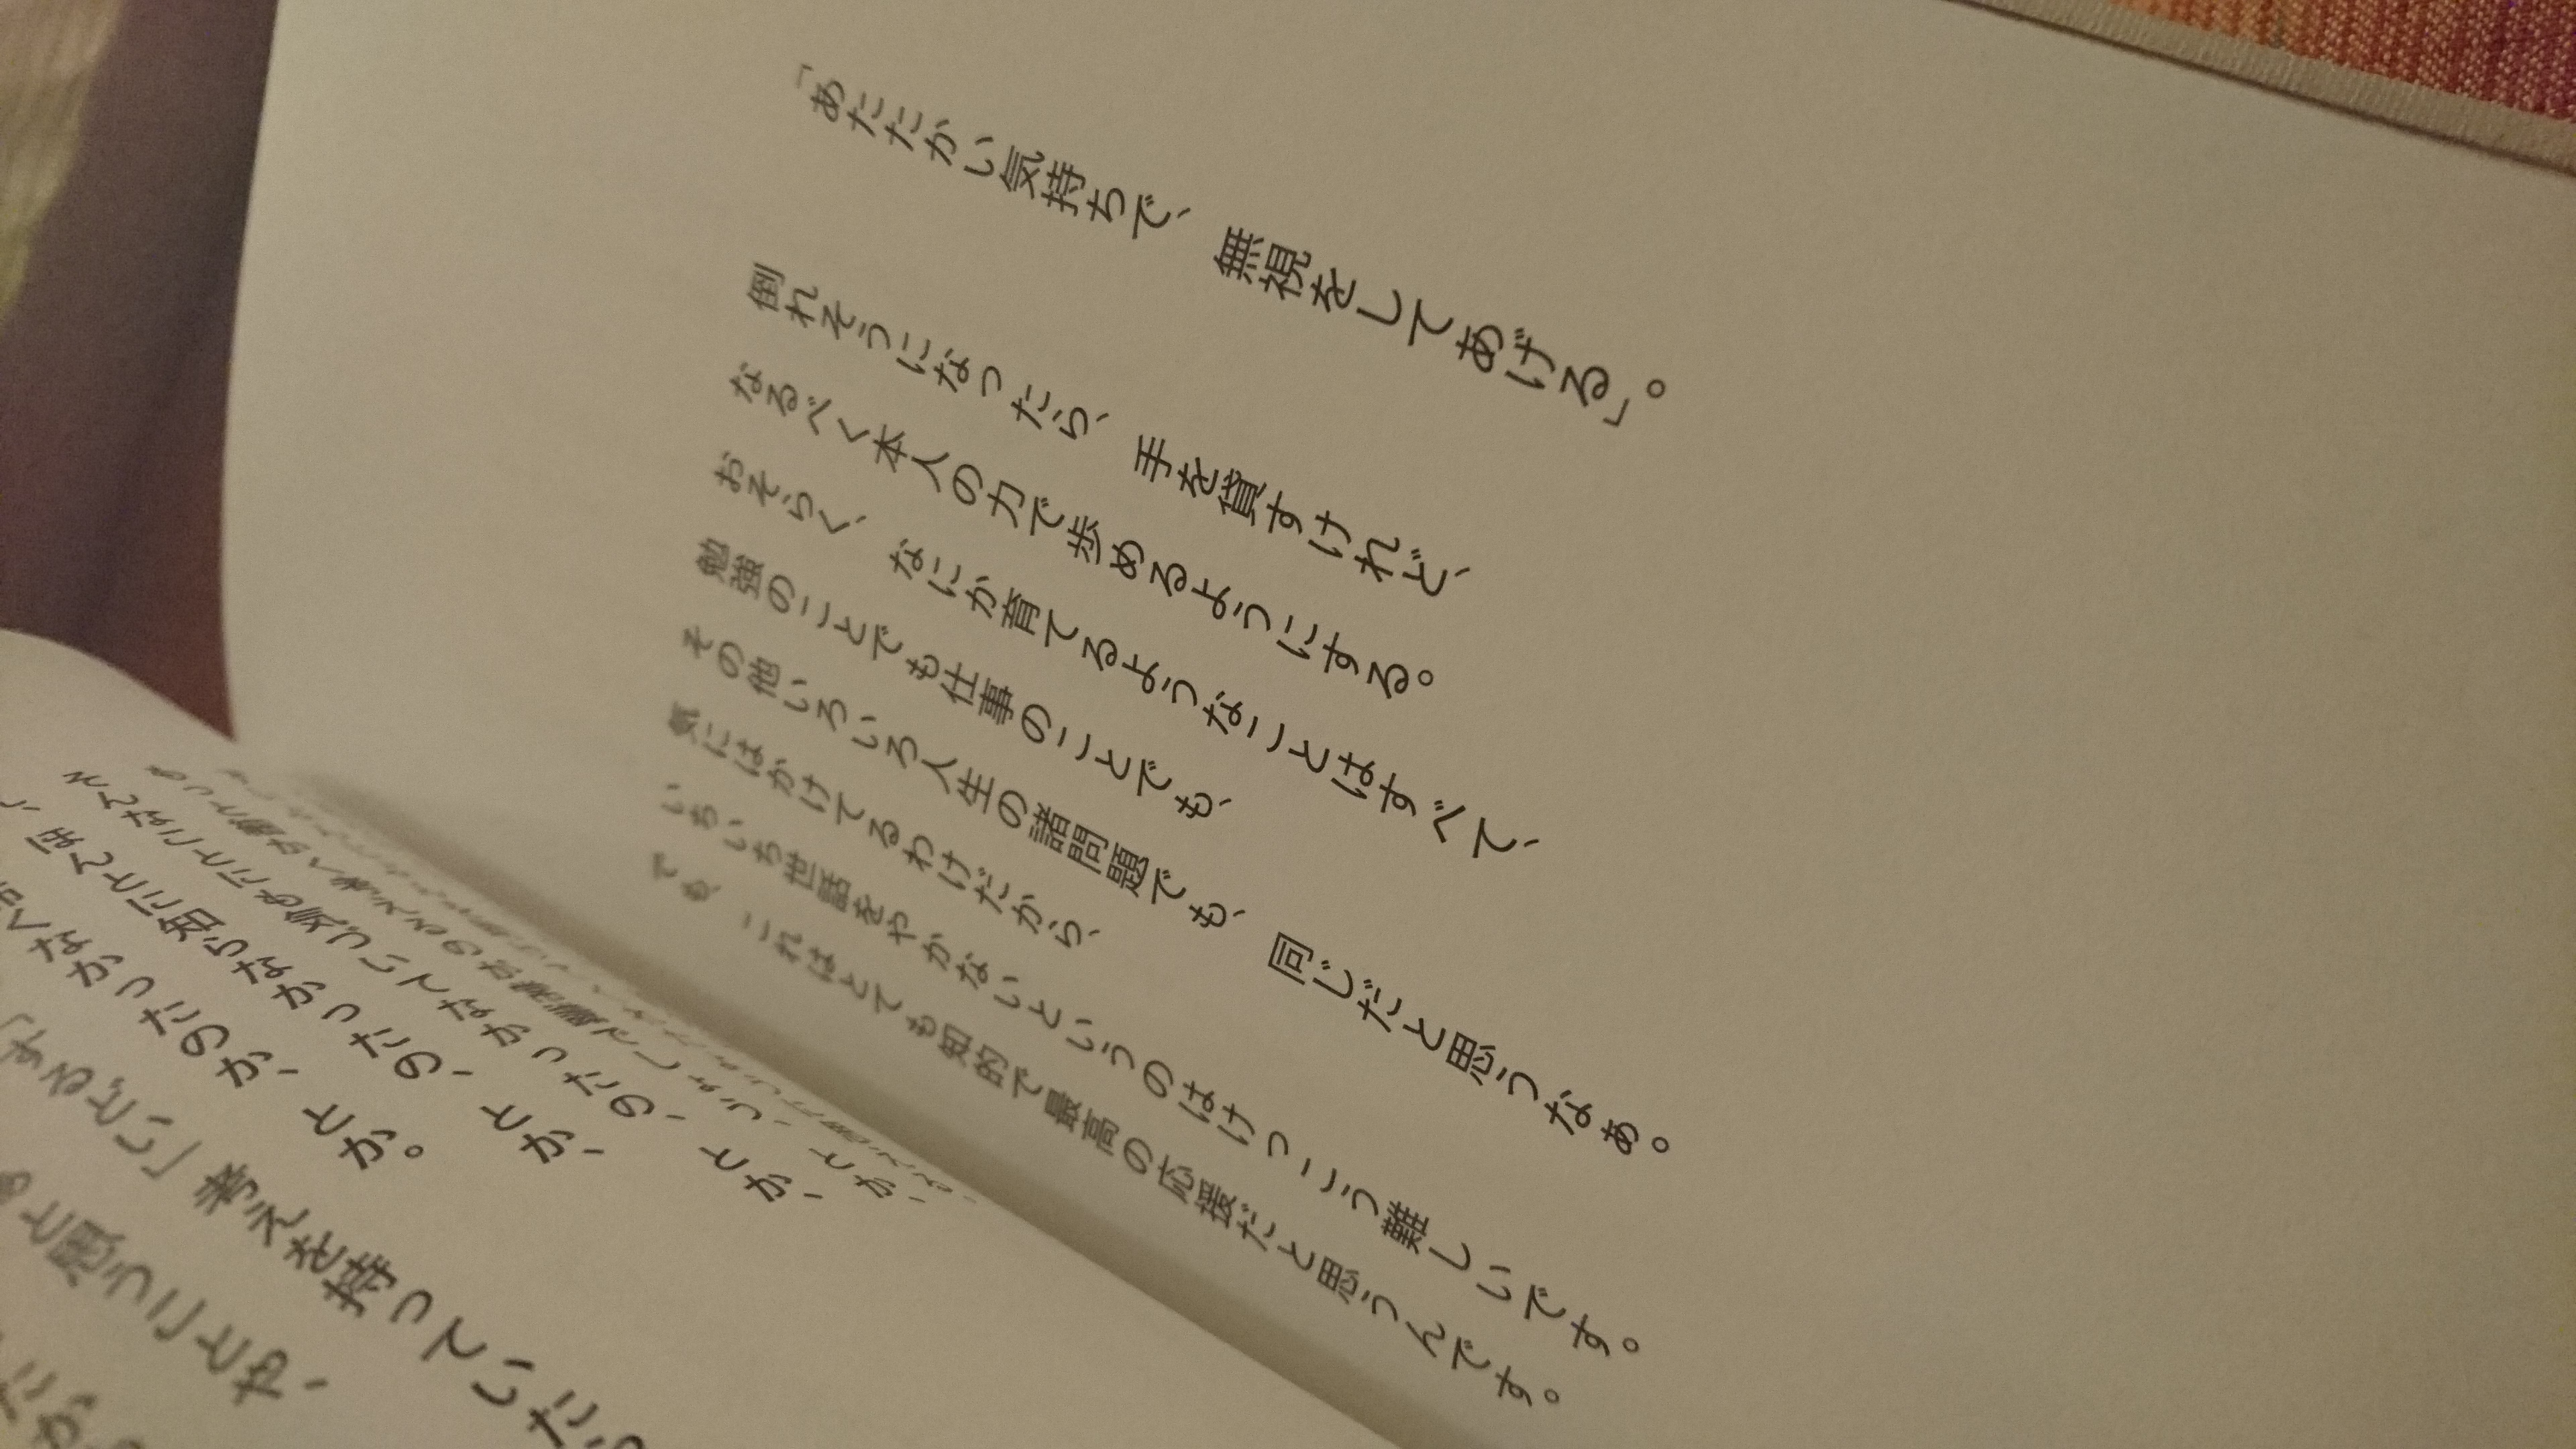 「あたたかい気持ちで、無視をしてあげる」。
倒れそうになったら、手を貸すけれど、
なるべく本人の力で歩めるようにする。
おそらく、なにか育てるようなことはすべて、
勉強のことでも仕事のことでも、
その他いろいろ人生の諸問題でも、同じだと思うなぁ。
気にはかけてるわけだから、
いちいち世話をやかないというのはけっこう難しいです。
でも、これはとても知的で最高の応援だと思うんです。
と思うことや、
「するどい」考えを持っていたら
くなかったのか、とか。
ほんとに知らなかったの、とか、
そんなことにも気づいてなかったの、とか、